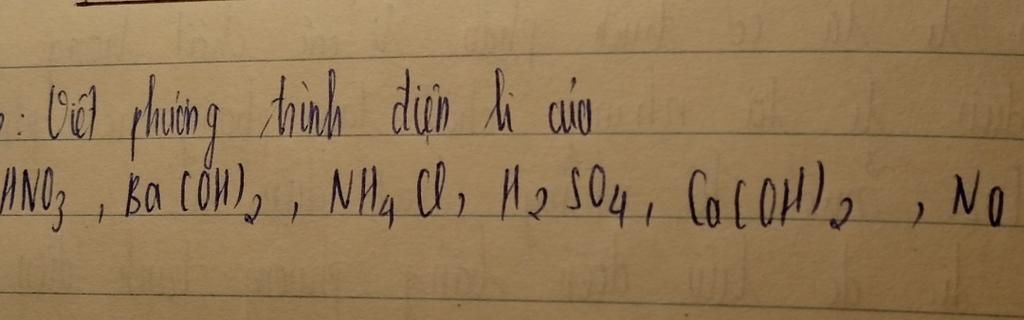 : Viết phương trình điện li của
HNO3, Ba(OH)2, NH4Cl, H2SO4, Ca(OH)2, Na